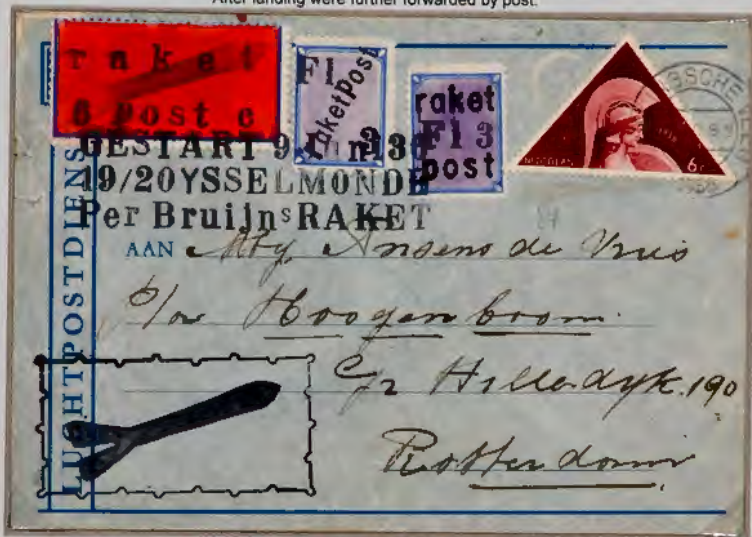 After landing were further forwarded by post.
raket
6 post c
Fl
raketpost
3
raket
Fl 3
post
NEDERLAND
6c
GESTART 9 Juni 36
19/20 YSSELMONDE
Per Bruijns RAKET
LUCHTPOSTDIENS
AAN Mej. Ansens de Vries
p/a Hoogenboom.
Hilledyk. 190
Rotterdam